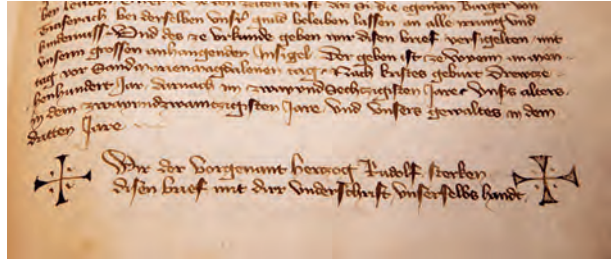 ber
zeiten an ist an si die egenan Burger von
bei derselben unsr gnad beleiben lassen an alle irrung und
hindernuss Und des ze Urkunde geben wir disen brief versigelten mit
unserm grossen anhangenden Insigel Der geben ist ze Wyenn an men
tag vor Sand marienmagdalenen tag Nach kristes geburt Drewze
henhundert Jar darnach in zwayundSechtzigisten Jare Unsrs alters
in dem zwayundzwaintzigisten Jare Und Unsers gewaltes in dem
dritten Jare
Wir der vorgenant herczog Rudolf sterken
disen brief mit dirr underschrift unserselbs handt